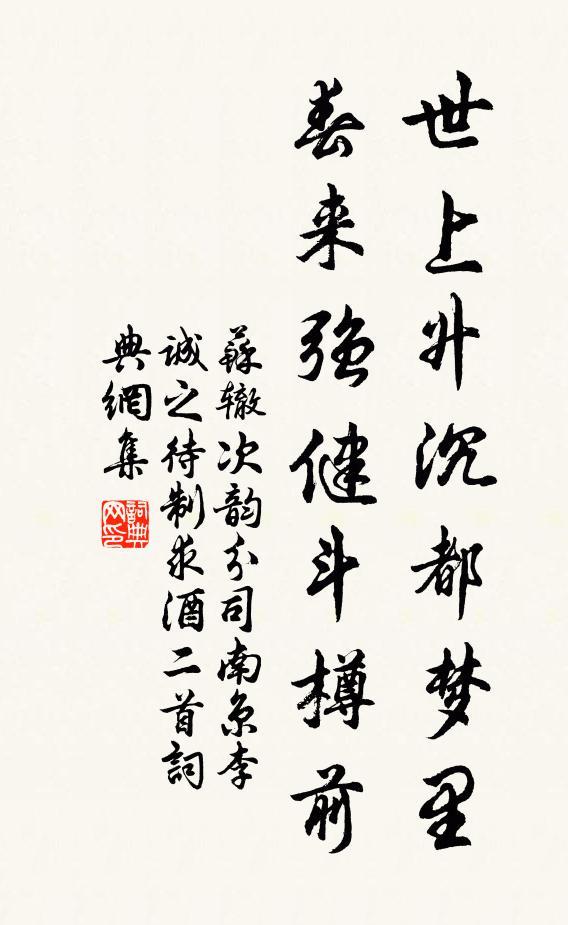 世上升沉都梦里
春来强健斗樽前
蘇辙次韵分司南京李
诚之待制求酒二首詞
典網集
詞典网印